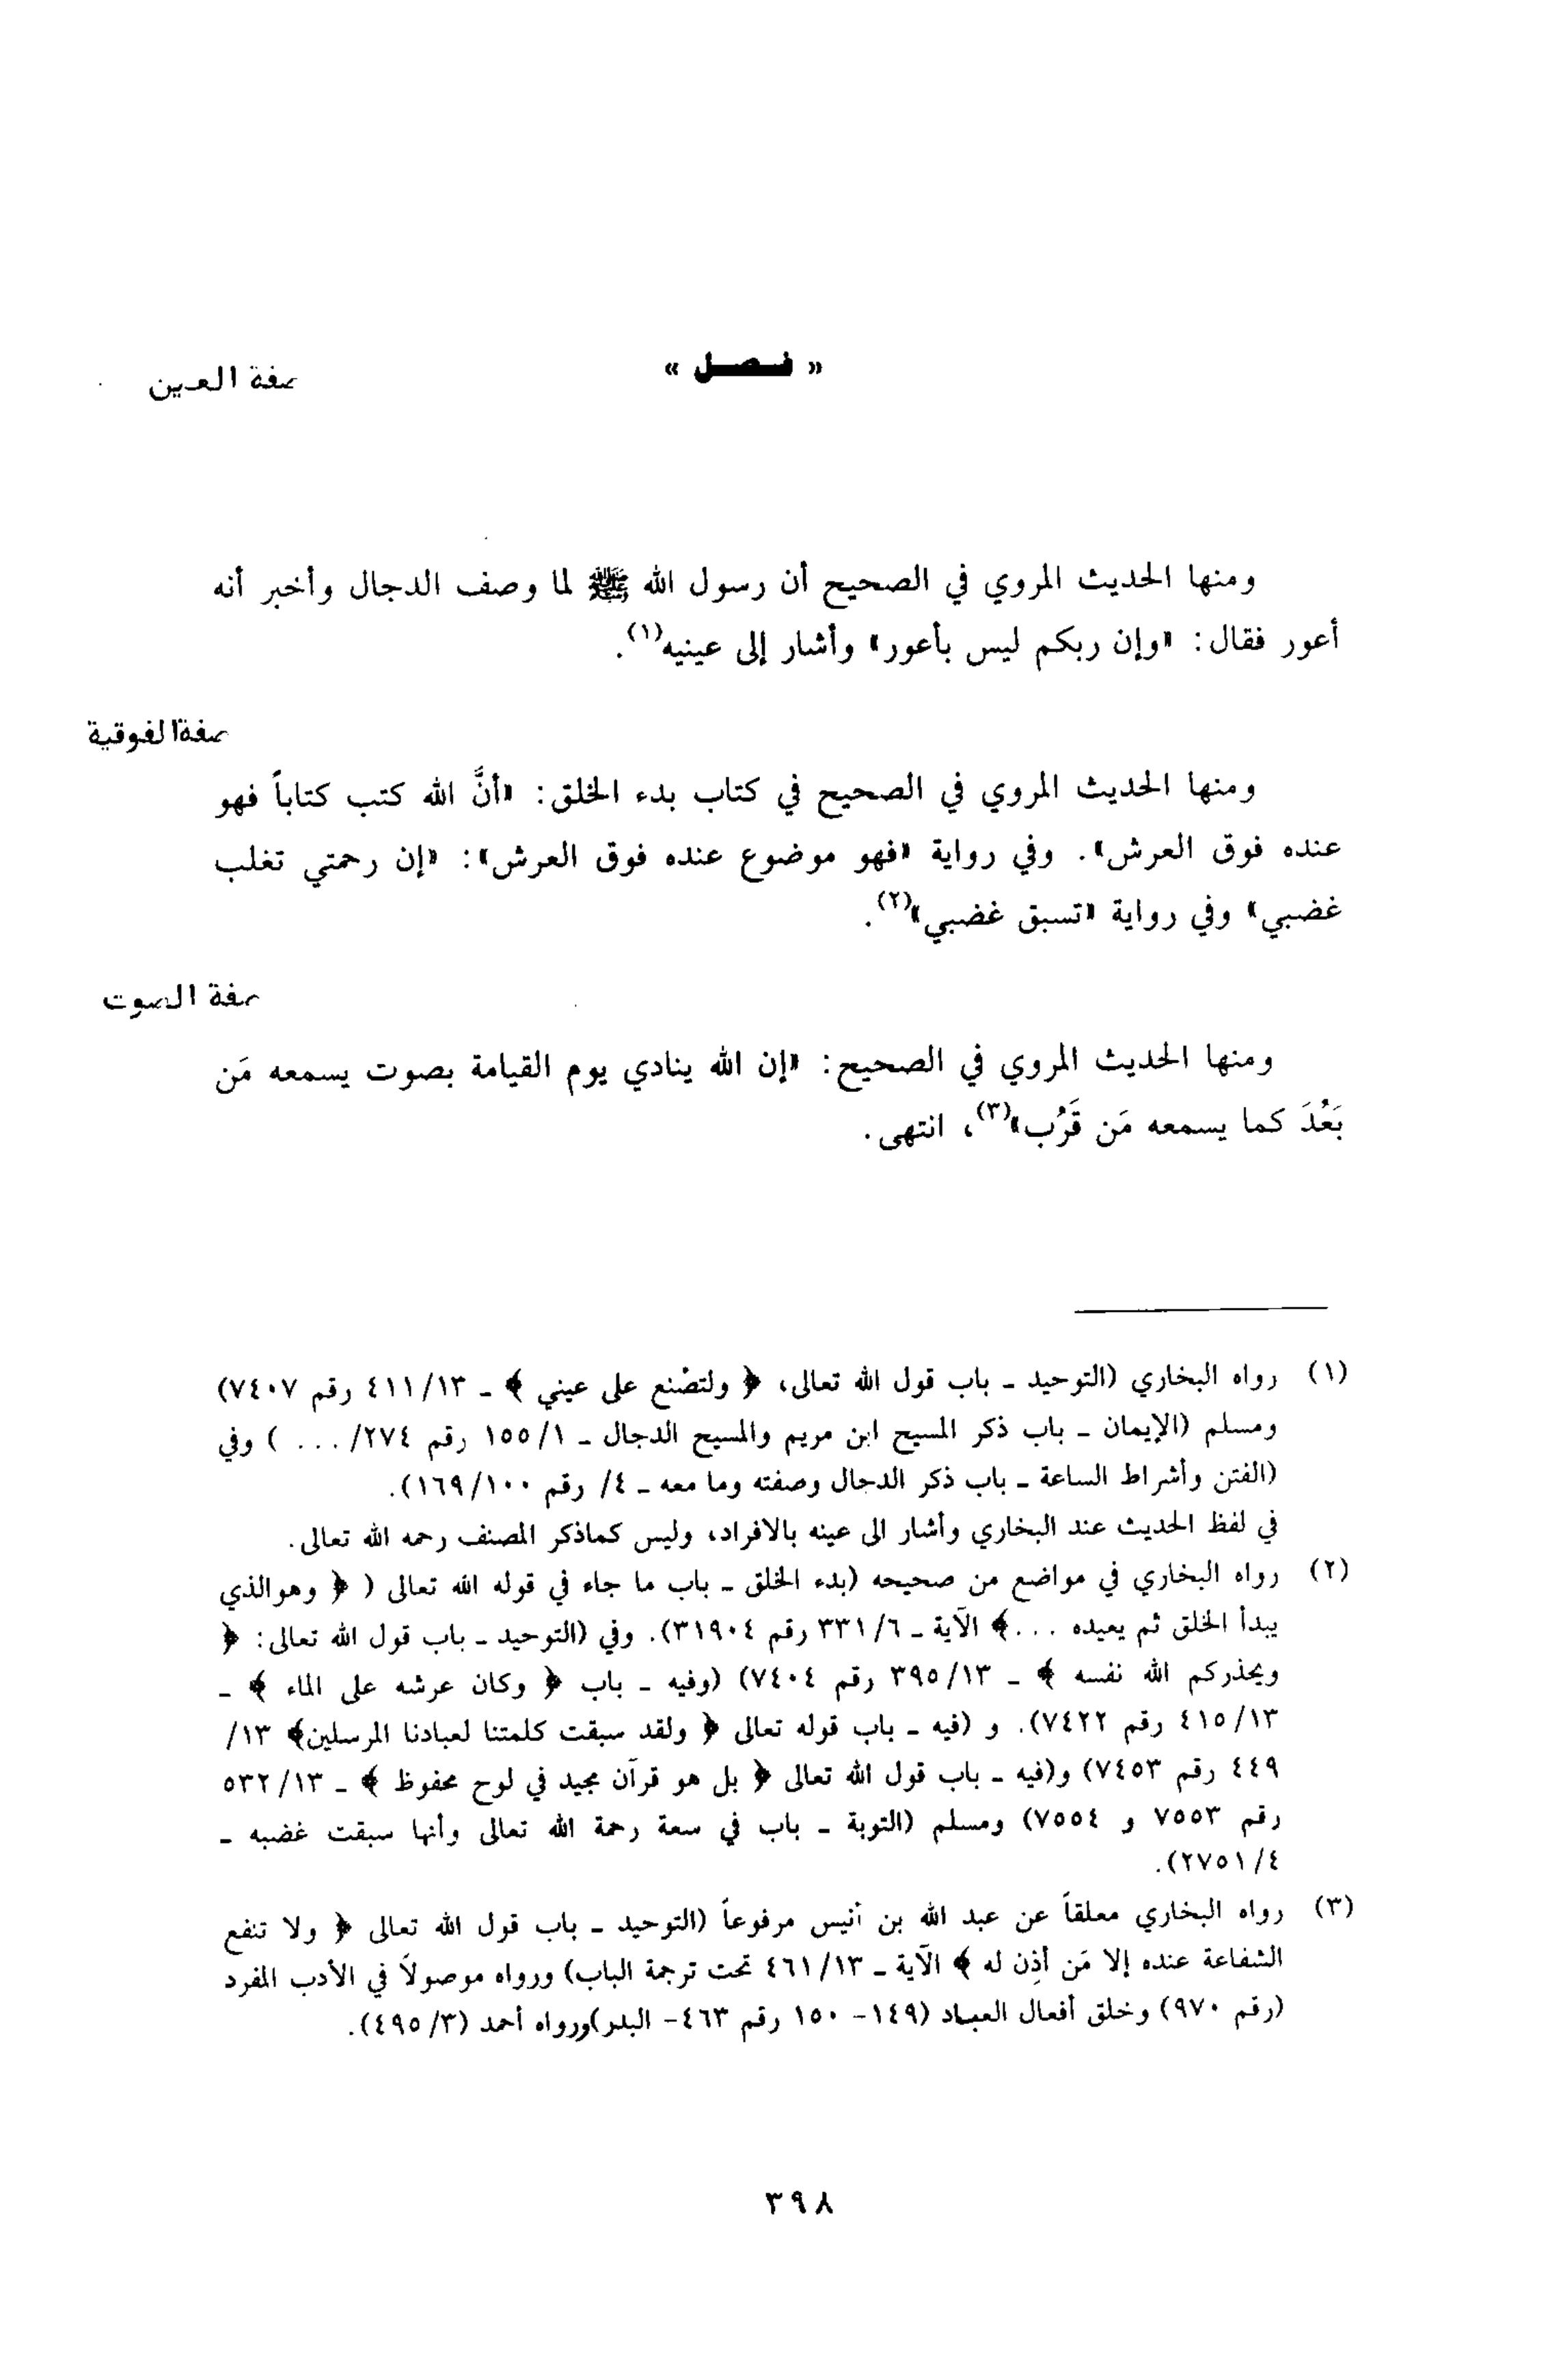 « فـصـل »
صفة العين
ومنها الحديث المروي في الصحيح أن رسول الله ﷺ لما وصف الدجال وأخبر أنه
أعور فقال: «وإن ربكم ليس بأعور» وأشار إلى عينيه(١).
صفةالفوقية
ومنها الحديث المروي في الصحيح في كتاب بدء الخلق: «أنَّ الله كتب كتاباً فهو
عنده فوق العرش». وفي رواية «فهو موضوع عنده فوق العرش»: «إن رحمتي تغلب
غضبي» وفي رواية «تسبق غضبي»(٢).
صفة الصوت
ومنها الحديث المروي في الصحيح: «إن الله ينادي يوم القيامة بصوت يسمعه مَن
بَعُدَ كما يسمعه مَن قَرُب»(٣)، انتهى.
(١) رواه البخاري (التوحيد ـ باب قول الله تعالى، ﴿ ولتصْنع على عيني ﴾ ـ ٤١١/١٣ رقم ٧٤٠٧)
ومسلم (الإيمان ـ باب ذكر المسيح ابن مريم والمسيح الدجال ـ ١٥٥/١ رقم ٢٧٤/ ... ) وفي
(الفتن وأشراط الساعة ـ باب ذكر الدجال وصفته وما معه ـ ٤/ رقم ١٦٩/١٠٠).
في لفظ الحديث عند البخاري وأشار الى عينه بالافراد، وليس كماذكر المصنف رحمه الله تعالى.
(٢) رواه البخاري في مواضع من صحيحه (بدء الخلق ـ باب ما جاء في قوله الله تعالى ( ﴿ وهوالذي
يبدأ الخلق ثم يعيده ...﴾ الآية ـ ٣٣١/٦ رقم ٣١٩٠٤). وفي (التوحيد ـ باب قول الله تعالى: ﴿
ويحذركم الله نفسه ﴾ ـ ٣٩٥/١٣ رقم ٧٤٠٤) (وفيه ـ باب ﴿ وكان عرشه على الماء ﴾ ـ
٤١٥/١٣ رقم ٧٤٢٢). و (فيه ـ باب قوله تعالى ﴿ ولقد سبقت كلمتنا لعبادنا المرسلين﴾ ١٣/
٤٤٩ رقم ٧٤٥٣) و(فيه ـ باب قول الله تعالى ﴿ بل هو قرآن مجيد في لوح محفوظ ﴾ ـ ٥٣٢/١٣
رقم ٧٥٥٣ و ٧٥٥٤) ومسلم (التوبة ـ باب في سعة رحمة الله تعالى وأنها سبقت غضبه ـ
٢٧٥١/٤).
(٣) رواه البخاري معلقاً عن عبد الله بن أنيس مرفوعاً (التوحيد ـ باب قول الله تعالى ﴿ ولا تنفع
الشفاعة عنده إلا مَن أذِن له ﴾ الآية ـ ٤٦١/١٣ تحت ترجمة الباب) ورواه موصولاً في الأدب المفرد
(رقم ٩٧٠) وخلق أفعال العباد (١٤٩- ١٥٠ رقم ٤٦٣- البدر)ورواه أحمد (٤٩٥/٣).
٣٩٨